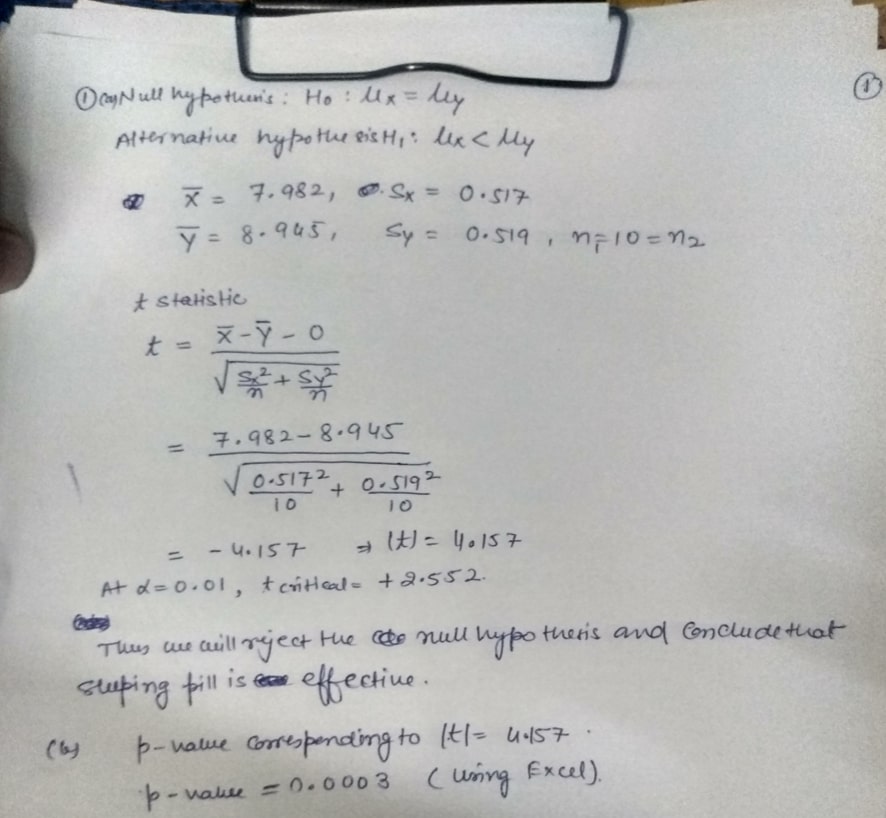 ① (a) Null hypothesis : H0 : μx = μy
①
Alternative hypothesis H1 : μx < μy
x̄ = 7.982, Sx = 0.517
ȳ = 8.945, Sy = 0.519, n1=10=n2
t statistic
t = (x̄ - ȳ - 0) / √(Sx²/n + Sy²/n)
= (7.982 - 8.945) / √(0.517²/10 + 0.519²/10)
= -4.157 ⇒ |t| = 4.157
At α=0.01, t critical = +2.552.
Thus we will reject the null hypothesis and conclude that
sleeping pill is effective.
(b) p-value corresponding to |t| = 4.157.
p-value = 0.0003 (using Excel).